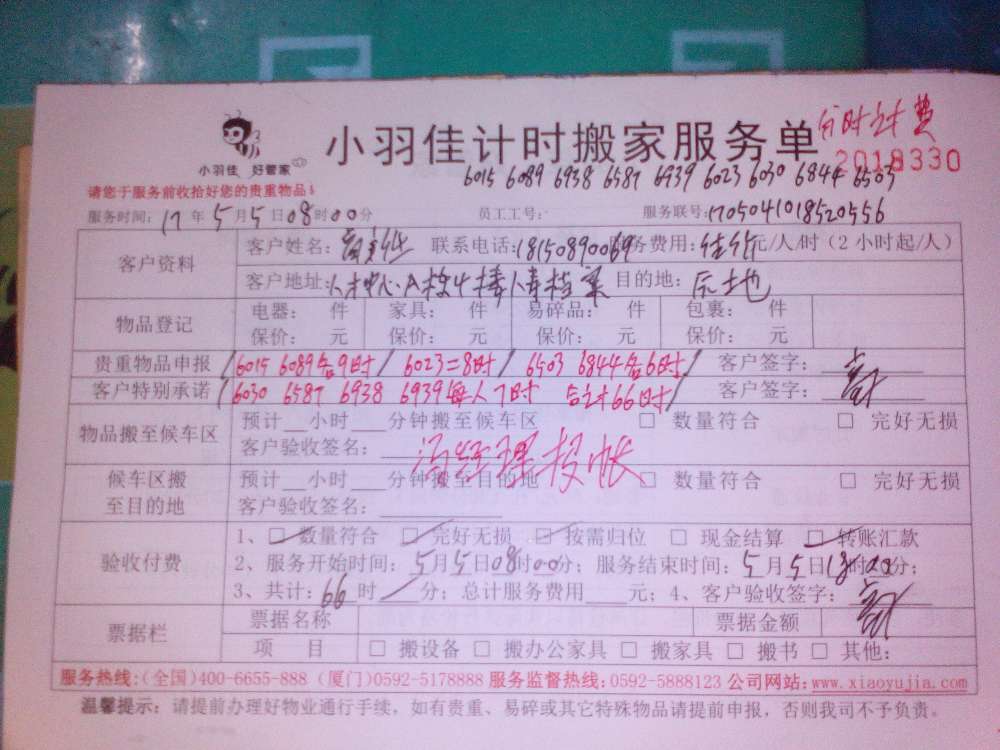 小羽佳 好管家
小羽佳计时搬家服务单
分时计费
2018330
请您于服务前收拾好您的贵重物品!
6015 6089 6938 6587 6939 6023 6030 6844 6503
服务时间: 17 年 5 月 5 日 08 时 00 分 员工工号: 服务联号: 1705041018520556
客户资料
客户姓名: 联系电话: 18150890069 服务费用: 元/人/时 (2 小时起/人)
客户地址: 人才中心A栋4楼人事档案 目的地: 原地
物品登记
电器: 件 家具: 件 易碎品: 件 包裹: 件
保价: 元 保价: 元 保价: 元 保价: 元
贵重物品申报 /6015 6089各9时/ 6023=8时/ 6503 6844各6时/ 客户签字:
客户特别承诺 /6030 6587 6938 6939每人7时 合计66时/ 客户签字:
物品搬至候车区
预计 小时 分钟搬至候车区 □ 数量符合 □ 完好无损
客户验收签名:
冯经理报帐
候车区搬至目的地
预计 小时 分钟搬至目的地 □ 数量符合 □ 完好无损
客户验收签名:
验收付费
1、□ 数量符合 □ 完好无损 □ 按需归位 □ 现金结算 □ 转账汇款
2、服务开始时间: 5 月 5 日 08 时 00 分; 服务结束时间: 5 月 5 日 18 时 00 分;
3、共计: 66 时 / 分; 总计服务费用 元; 4、客户验收签字:
票据栏
票据名称 票据金额
项 目 □ 搬设备 □ 搬办公家具 □ 搬家具 □ 搬书 □ 其他:
服务热线:(全国)400-6655-888 (厦门)0592-5178888 服务监督热线:0592-5888123 公司网站:www.xiaoyujia.com
温馨提示: 请提前办理好物业通行手续, 如有贵重、易碎或其它特殊物品请提前申报, 否则我司不予负责。